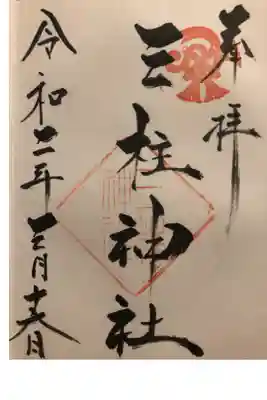 奉拝
三柱神社
令和二年三月十春日